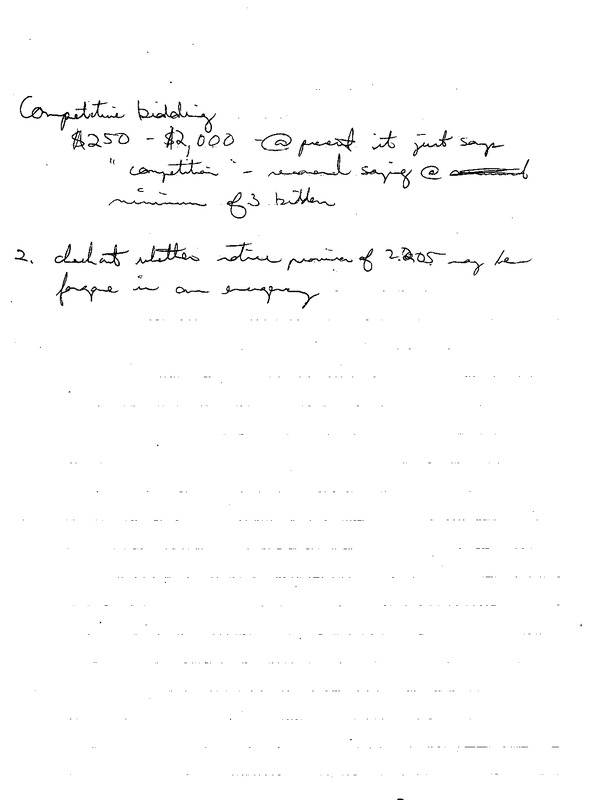 Competitive bidding
$250 - $2,000 - @ present it just says
"competition" - recommend saying @
minimum of 3 bidders
2. check out whether notice provision of 2.205 may be
forgone in an emergency